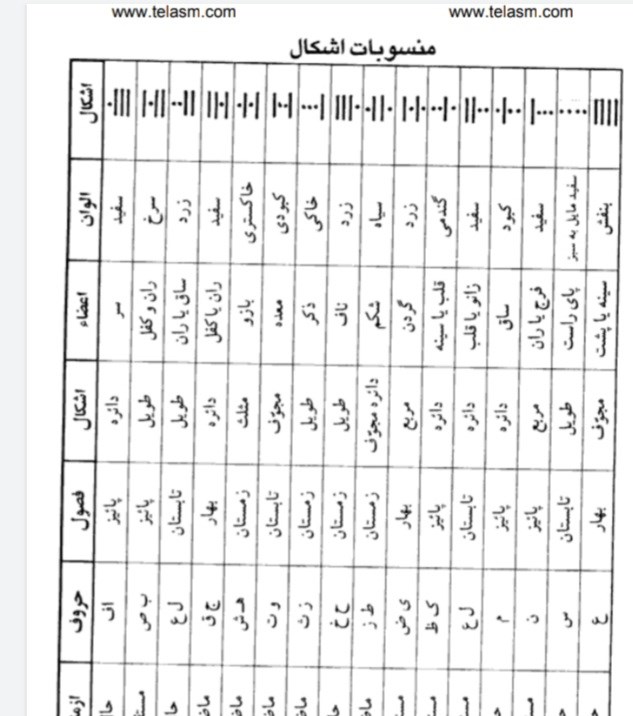 www.telasm.com www.telasm.com
منسوبات اشکال
اشکال الوان اعضاء اشکال فصول حروف
سفید سر دائره پائیز اف
سرخ ران و کفل طویل پائیز ب ص
زرد ساق یا ران طویل تابستان ل ع
سفید ران یا کفل دائره بهار ج ق
خاکستری بازو مثلث زمستان ه ش
کبودی معده مجوّف تابستان و ت
خاکی ذکر طویل زمستان ز ث
زرد ناف طویل زمستان ح خ
سیاه شکم دائره مجوّف زمستان ط ز
زرد گردن مربع بهار ی ض
گندمی قلب یا سینه دائره پائیز ک ظ
سفید زانو یا قلب دائره تابستان ل ع
کبود ساق دائره پائیز م
سفید فرج یا ران مربع پائیز ن
سفید مایل به سبز پای راست طویل تابستان س
بنفش سینه یا پشت مجوّف بهار ع